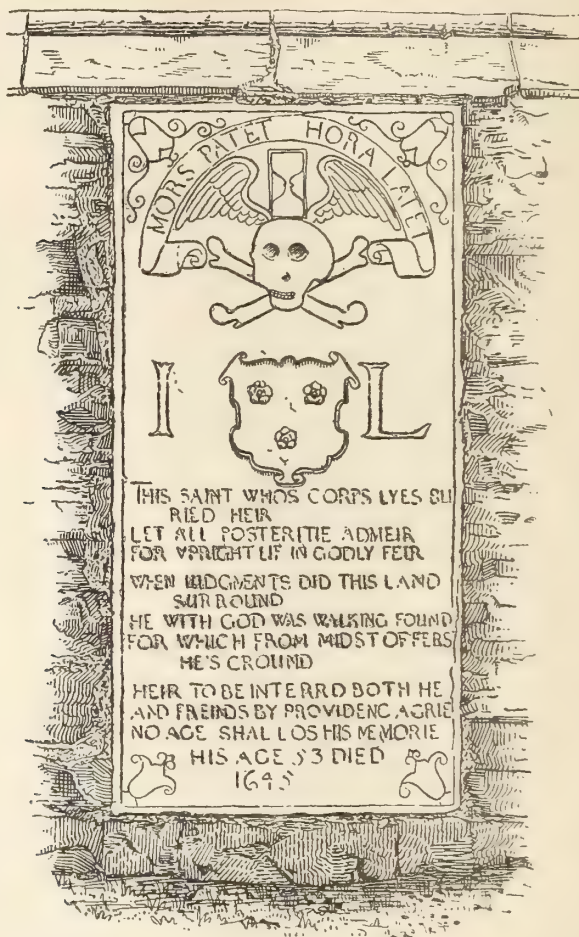 MORS PATET HORA LATET
I L
THIS SAINT WHOS CORPS LYES BU
RIED HEIR
LET ALL POSTERITIE ADMEIR
FOR VPRIGHT LIF IN GODLY FEIR
WHEN IUDGMENTS DID THIS LAND
SURROUND
HE WITH GOD WAS WALKING FOUND
FOR WHICH FROM MIDST OF FERS
HE'S CROUND
HEIR TO BE INTERRD BOTH HE
AND FREINDS BY PROVIDENC AGRIE
NO AGE SHAL LOS HIS MEMORIE
HIS AGE 53 DIED
1645